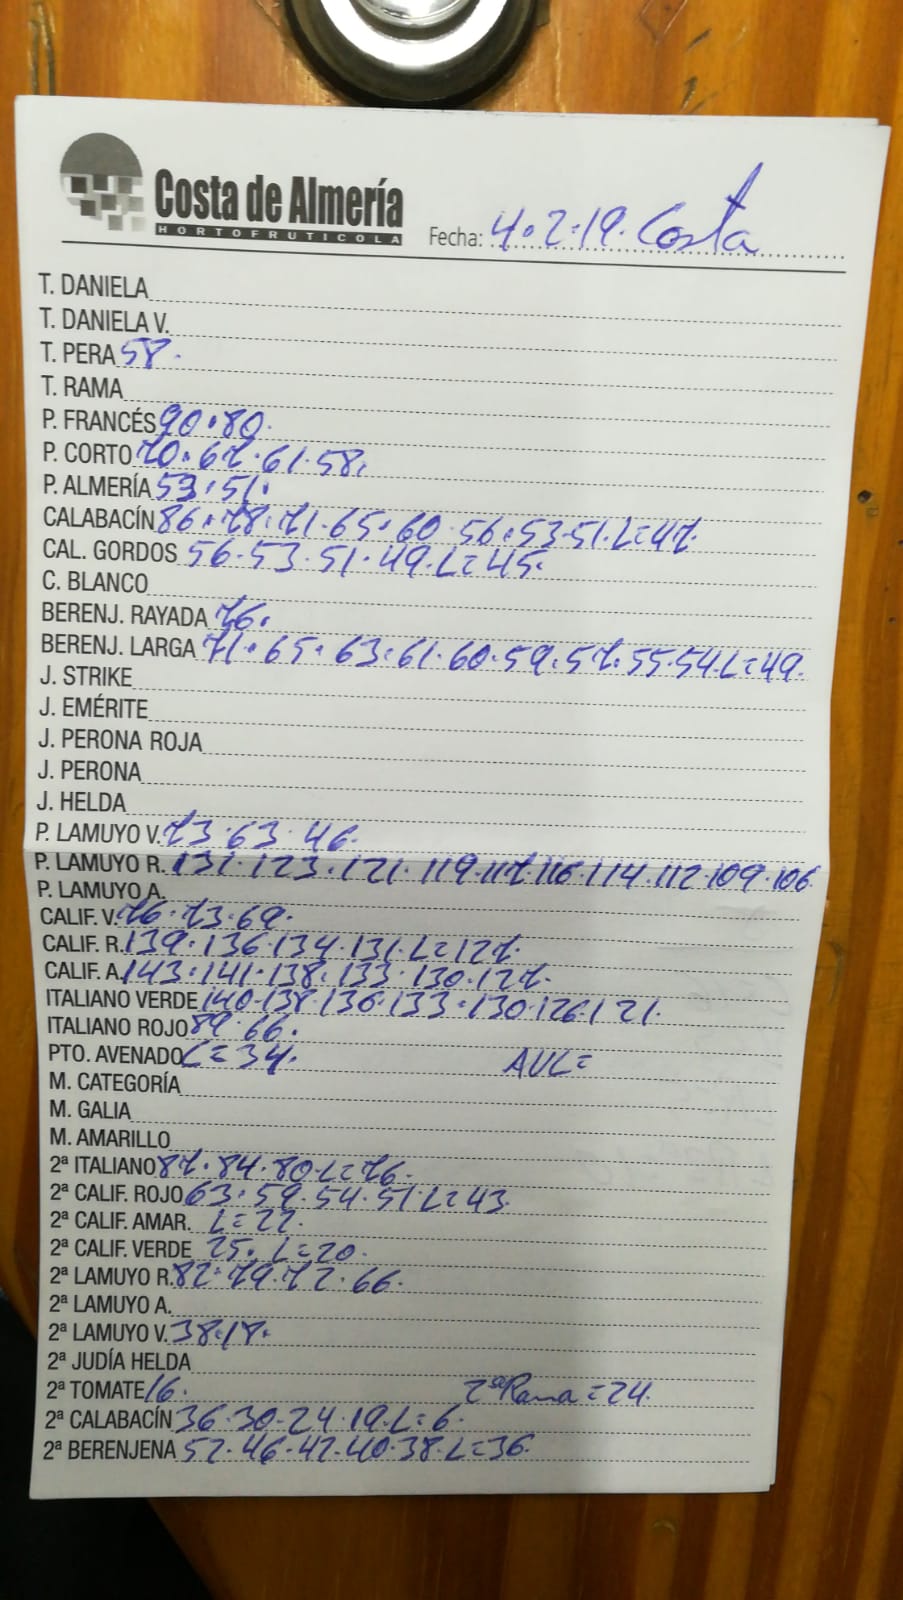 Costa de Almería
HORTOFRUTICOLA
Fecha: 4.2.19. Costa
T. DANIELA
T. DANIELA V.
T. PERA 58.
T. RAMA
P. FRANCÉS 90.80.
P. CORTO 70.67.61.58.
P. ALMERÍA 53.51.
CALABACÍN 86.78.71.65.60.56.53.51.L=47.
CAL. GORDOS 56.53.51.49.L=45.
C. BLANCO
BERENJ. RAYADA 76.
BERENJ. LARGA 71.65.63.61.60.59.57.55.54.L=49.
J. STRIKE
J. EMÉRITE
J. PERONA ROJA
J. PERONA
J. HELDA
P. LAMUYO V. 73.63.46.
P. LAMUYO R. 131.123.121.119.117.116.114.112.109.106
P. LAMUYO A.
CALIF. V. 76.73.69.
CALIF. R. 139.136.134.131.L=127.
CALIF. A. 143.141.138.133.130.127.
ITALIANO VERDE 140.138.136.133.130.126.121.
ITALIANO ROJO 89.66.
PTO. AVENADO L=34. AVL=
M. CATEGORÍA
M. GALIA
M. AMARILLO
2ª ITALIANO 87.84.80.L=76.
2ª CALIF. ROJO 63.59.54.51.L=43.
2ª CALIF. AMAR. L=22.
2ª CALIF. VERDE 25. L=20.
2ª LAMUYO R. 82.79.72.66.
2ª LAMUYO A.
2ª LAMUYO V. 38.18.
2ª JUDÍA HELDA
2ª TOMATE 16. 2ª Rama=24.
2ª CALABACÍN 36.30.24.19.L=6.
2ª BERENJENA 52.46.42.40.38.L=36.